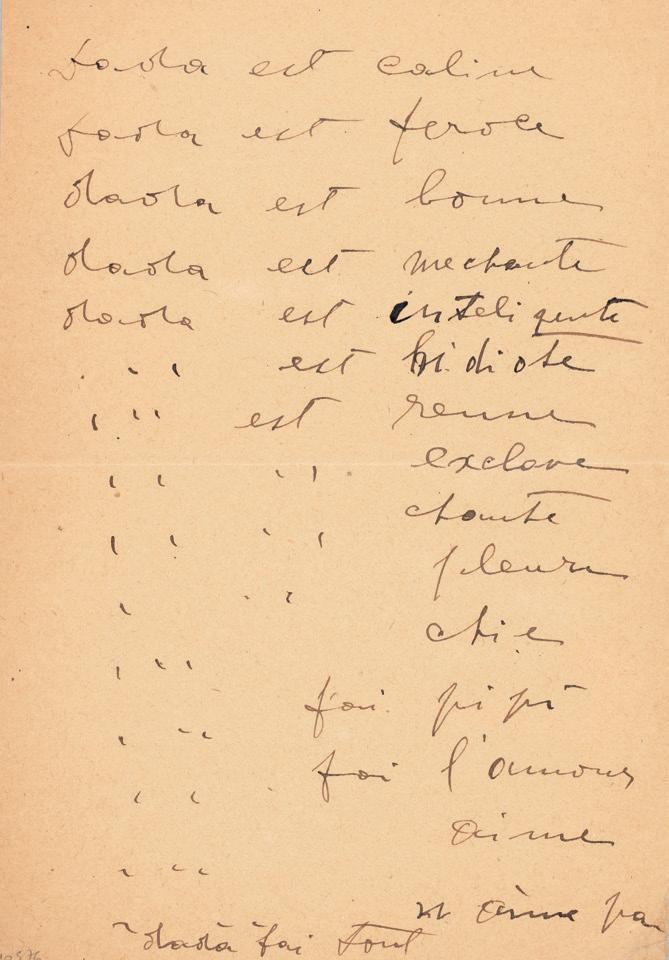 dada est caline
dada est feroce
dada est bonne
dada est mechante
dada est inteligente
" " est hidiote
" " est renne
" " " " exclave
" " " " chante
" " " pleure
" " " chie
" " " fai pipi
" " fai l'amour
" " " aime
n aime pa
dada fai tout